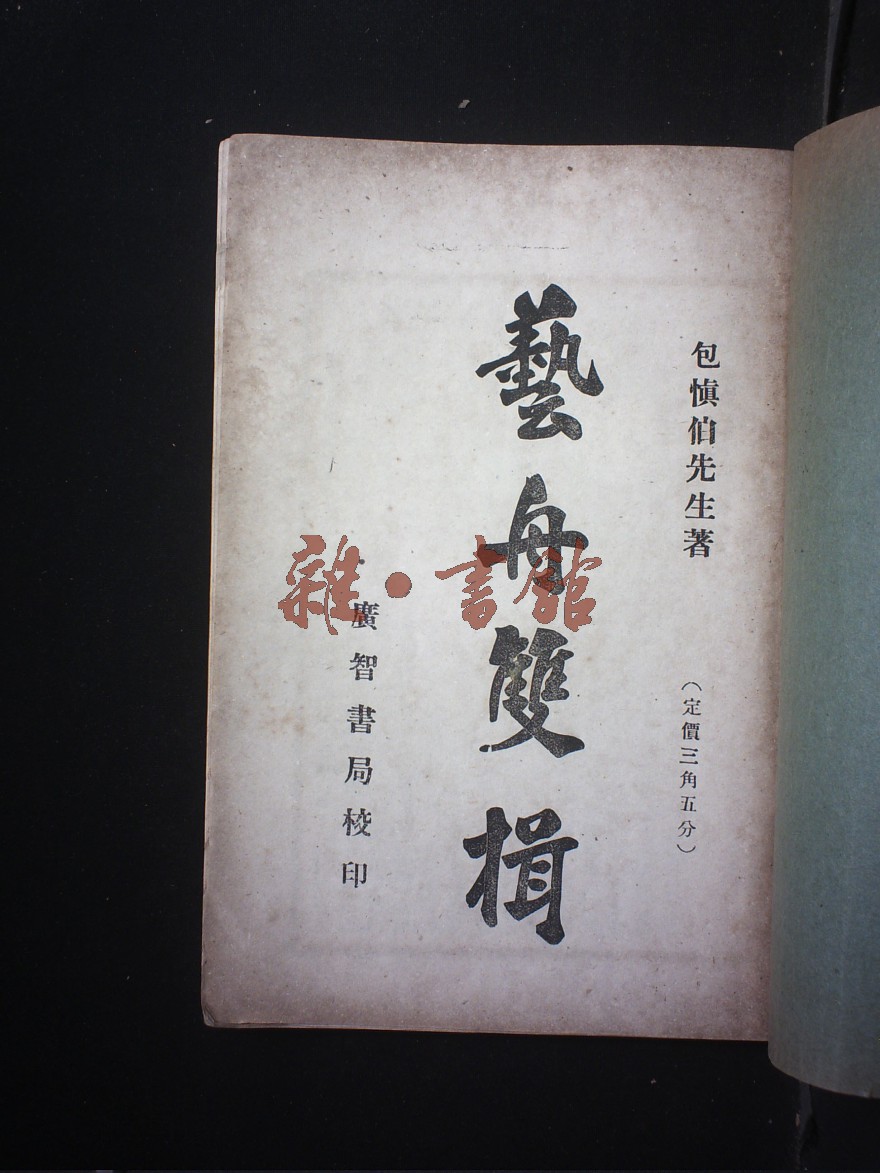 包愼伯先生著
（定價三角五分）
藝舟雙揖
廣智書局校印
雜·書館